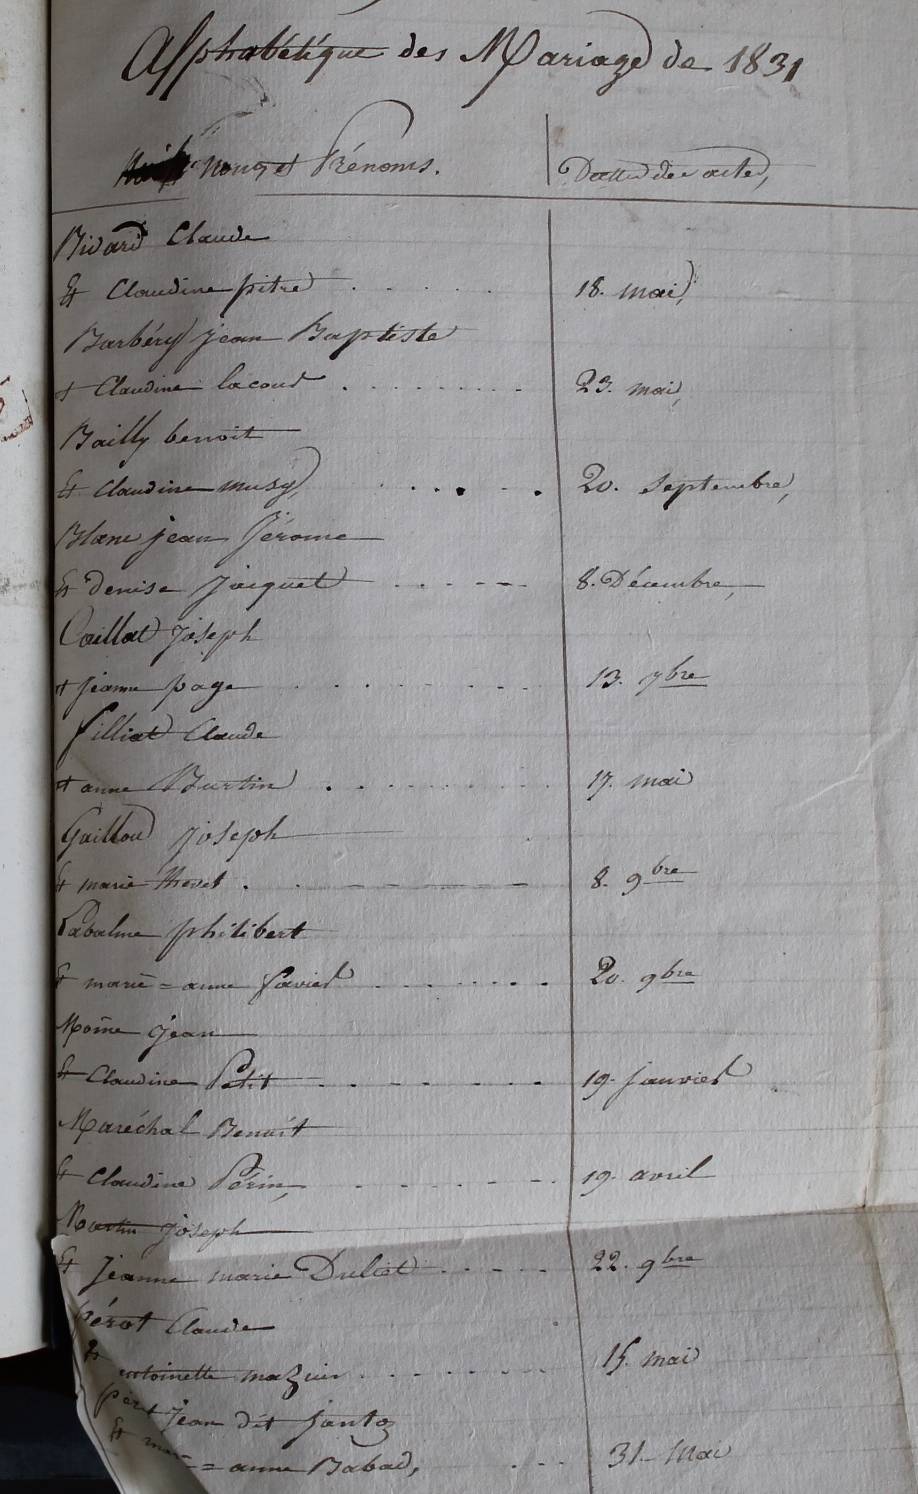 Alphabétique des Mariage de 1831
Noms et Prénoms. Dattes des actes,
Bidard Claude
Et Claudine pitre 18. mai,
Barbéry jean Baptiste
et Claudine lacour 23. mai,
Bailly benoit
Et Claudine musy 20. Septembre,
Blanc jean Jérome
Et denise Jacquet 8. Décembre,
Caillat Joseph
et jeanne page 13. 7bre
filliat Claude
et anne Burtin 17. mai
Gaillard Joseph
Et marie 8. 9bre
Labalme philibert
Et marie = anne favier 20. 9bre
Moine Jean
Et Claudine Petit 19. Janvier
Maréchal Benoit
Et Claudine Périn, 19. avril
Martin Joseph
Et Jeanne marie 22. 9bre
pérot Claude
Et antoinette mazuir 15. mai
Jean dit
Et = anne Babad, 31. Mai